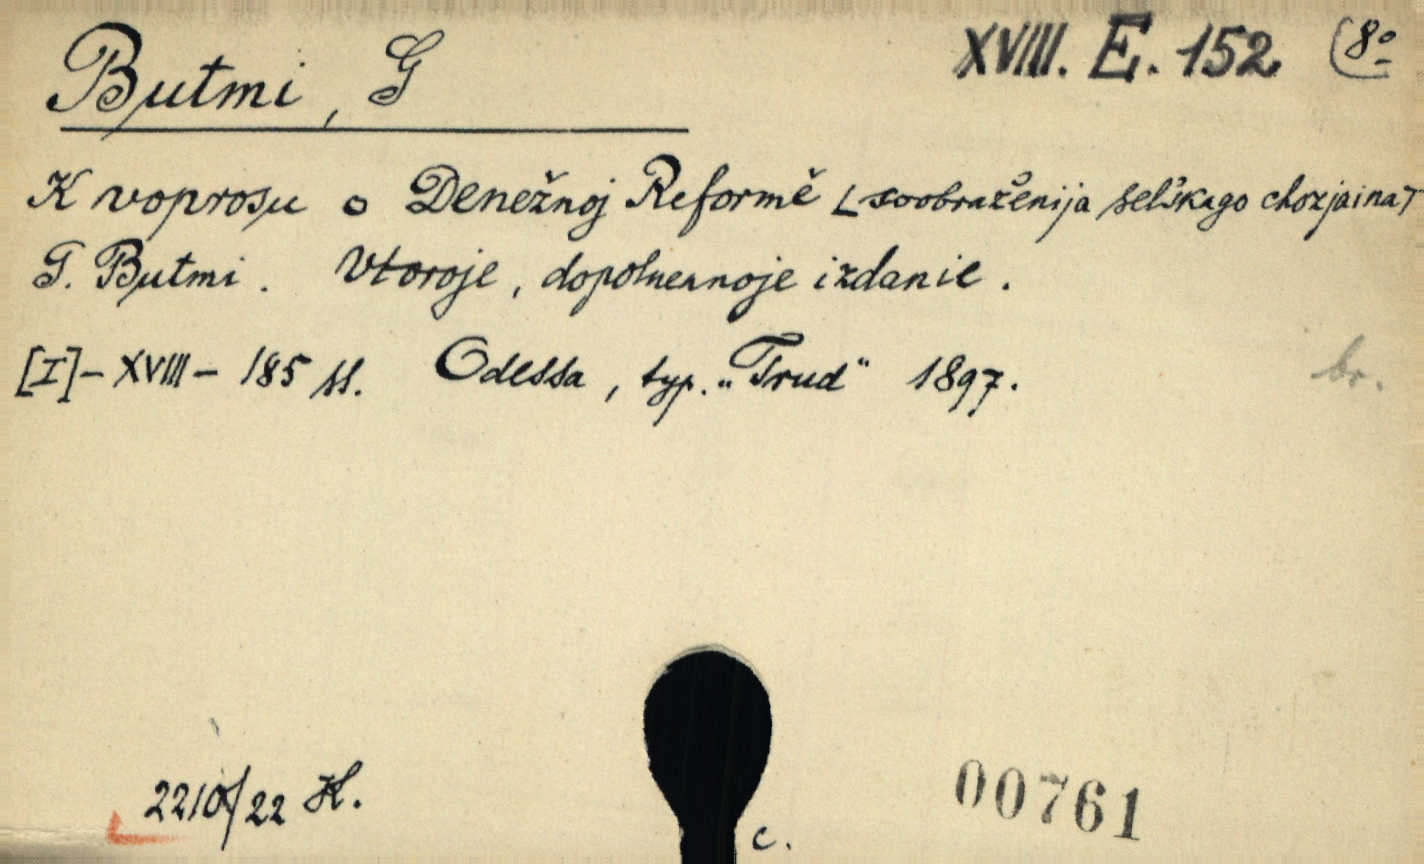 XVIII. E. 152 (8º
Butmi, G
K voprosu o Denežnoj Reformě (soobraženija sel'skago chozjaina)
G. Butmi. Vtoroje, dopolnennoje izdanie.
[I]-XVIII-185 ss. Odessa, typ. „Trud" 1897.
br.
2210/22 K.
c.
00761